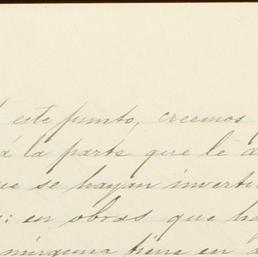 este punto, creemos
á la parte que le a
ue se hayan inverti
: en obras que ha
ninguna tiene en